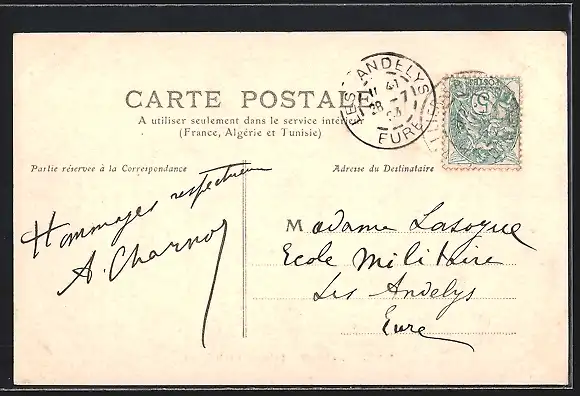 CARTE POSTALE
A utiliser seulement dans le service intérieur
(France, Algérie et Tunisie)
LES ANDELYS
EURE
Partie réservée à la Correspondance
Adresse du Destinataire
Hommages respectueux
A. Charnoy
Madame Lasogue
Ecole Militaire
Les Andelys
Eure